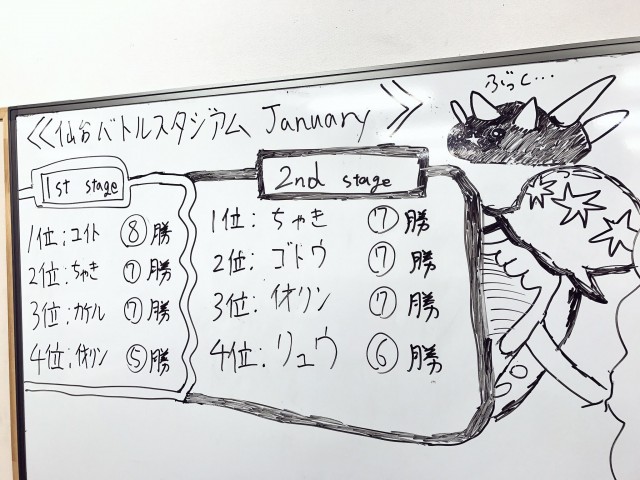 ≪仙台バトルスタジアム January≫
ぶっく…
1st stage
1位:ユイト ⑧勝
2位:ちゃき ⑦勝
3位:カケル ⑦勝
4位:イオリン ⑤勝
2nd stage
1位:ちゃき ⑦勝
2位:ゴドウ ⑦勝
3位:イオリン ⑦勝
4位:リュウ ⑥勝